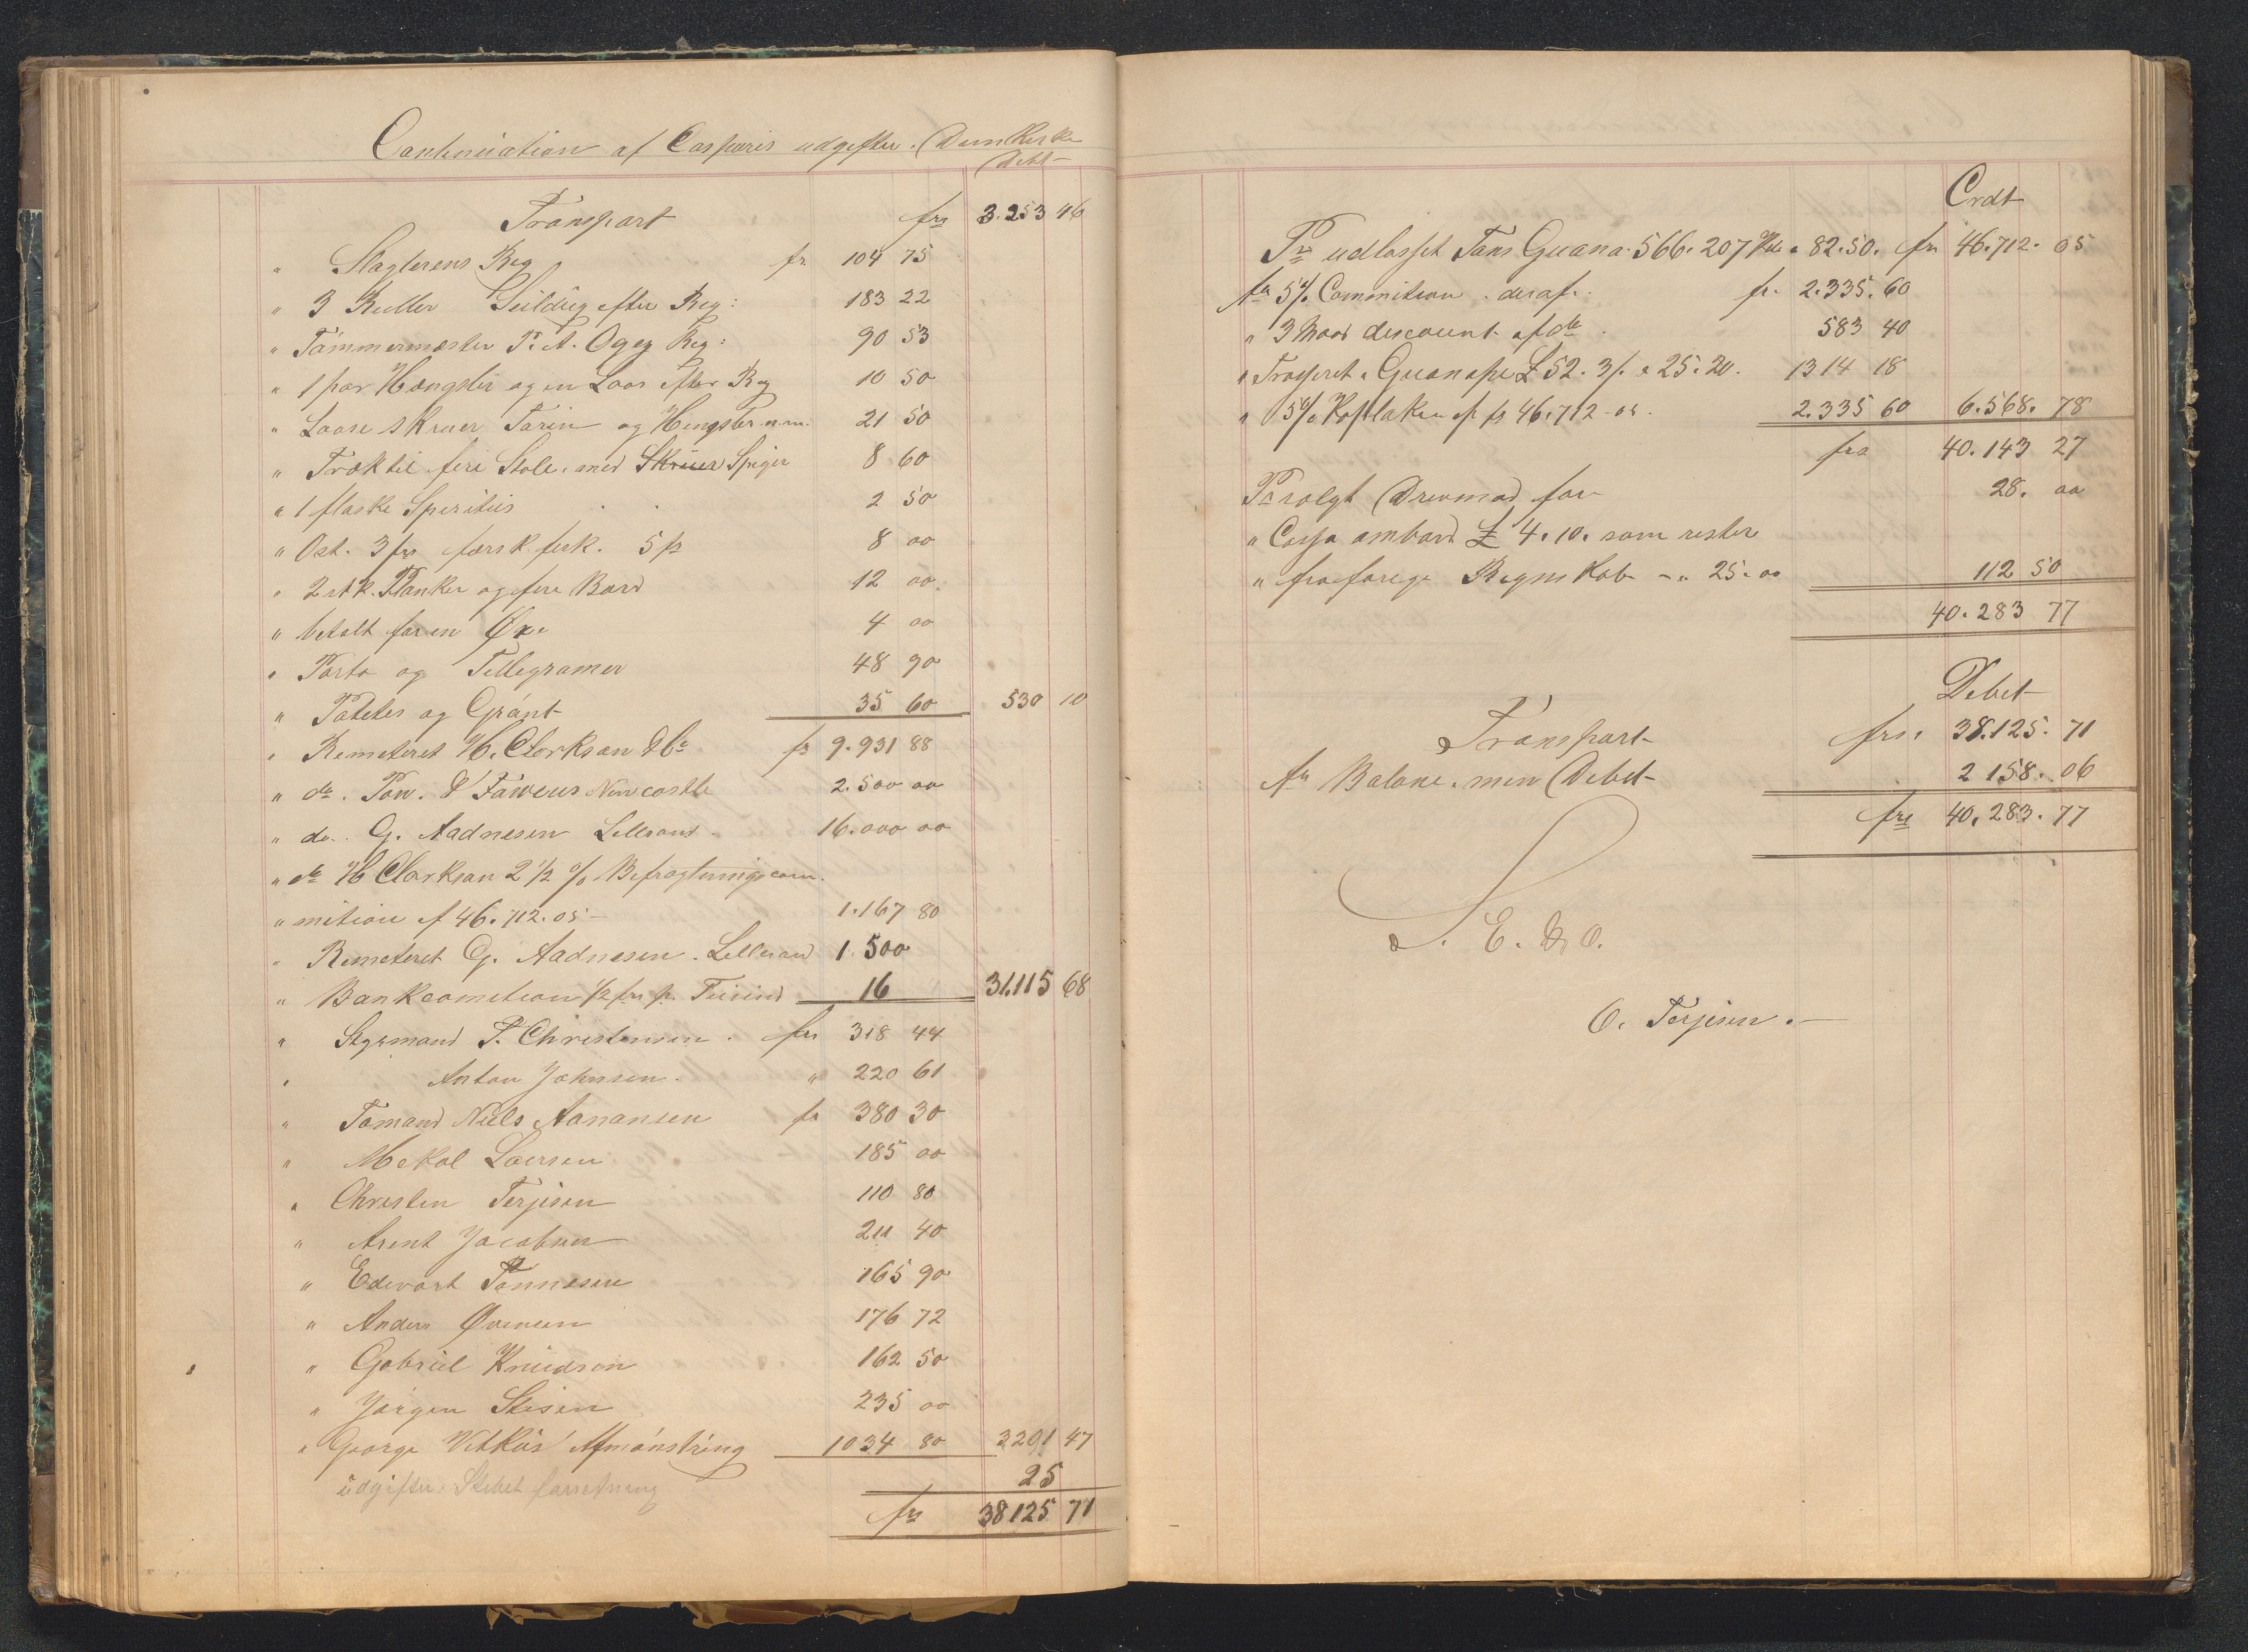 Continuation af Casparis udgifter. Dunkerke
Debt
Transport frs 3.253 46
" Slagterens Reg fr. 104 75
" 3 Ruller Seildug efter Reg: 183 22
" Tømmermester P. A. Ogez Reg: 90 53
" 1 par Hængsler og en Laas efter Reg 10 50
" Laase skruer Tarin og Hengsler m.m. 21 50
" Træk til fire Stole, med Skruer Spiger 8 60
" 1 flaske Speritus 2 50
" Ost. 3 frs færsk ferk. 5 fr 8 00
" 2 stk. Planker og fire Bord 12 00
" betalt for en Øxe 4 00
" Porto og Tellegramer 48 90
" Patetes og Grønt 35 60 530 10
" Remeteret H. Clarkson & Co fr 9.931 88
" do. Pow. & Fawcus Newcastle 2.500 00
" do. G. Aadnesen Lillesand 16.000 00
" do H Clarkson 2 1/2 % Befragtningscom.
" mition af 46.712.05 - 1.167 80
" Remeteret G. Aadnesen. Lillesand 1.500
" Bankcomition 1/2 frs p. Tusind 16 31.115 68
" Styrmand P. Christensen. frs 318 44
" Anton Johnsen. " 220 61
" Tømand Niels Aanansen fr 380 30
" Mekal Laersen 185 00
" Christen Terjesen 110 80
" Arent Jacobsen 211 40
" Edevart Tønnesen 165 90
" Anders Øvensen 176 72
" Gabriel Knudson 162 50
" Jørgen Stesen 235 00
" George Vitkus Afmønstring 1034 80 3201 47
udgifter. Stebet forretning 25
frs 38125 71
Crdt
Pr udlosset Tons Guana 566.207 Kilo a 82.50. frs 46.712.05
fr 5% Commition. deraf. fr. 2.335.60
" 3 Maad descount af do. 583 40
" Trasseret i Guanape £ 52.3/. a 25.20. 1314 18
" 5% Kaplaken af fr 46.712-05. 2.335 60 6.568.78
frs 40.143 27
Pr solgt Drevmad for 28.00
" Cassa ombord £ 4.10. som rester
" fra forige Regnskab - " 25.00 112 50
40.283 77
Debet
Transport frs. 38.125.71
fr Balance. men Debet 2 158.06
frs 40,283.77
S. E. & O.
O. Terjesen.